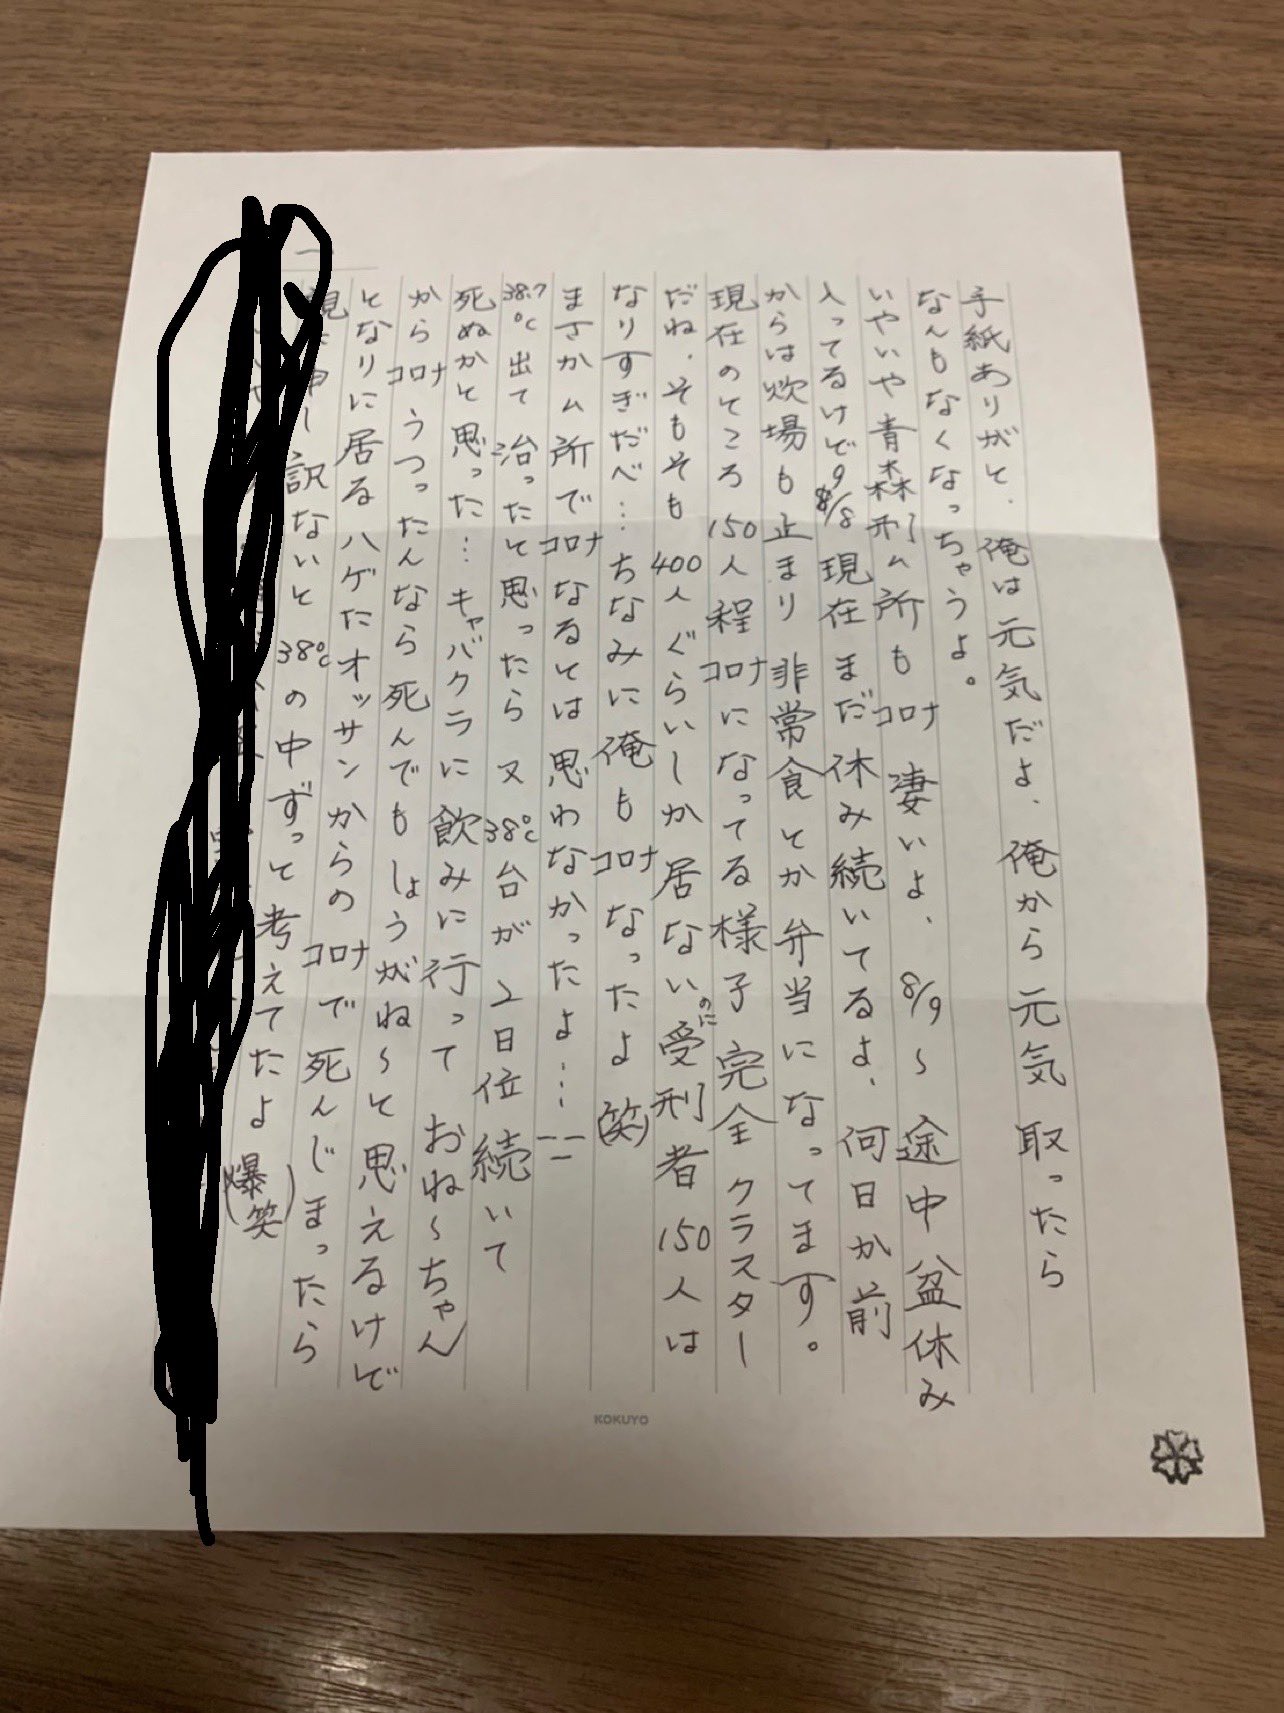 手紙ありがと、俺は元気だよ、俺から元気取ったら
なんもなくなっちゃうよ。
いやいや青森刑ム所もコロナ凄いよ、8/9〜途中盆休み
入ってるけど9/8現在まだ休み続いてるよ、何日か前
からは炊場も止まり非常食とか弁当になってます。
現在のところ150人程コロナになってる様子完全クラスター
だね、そもそも400人ぐらいしか居ないのに受刑者150人は
なりすぎだべ…ちなみに俺もコロナなったよ(笑)
まさかム所でコロナなるとは思わなかったよ…
38.7℃出て治ったと思ったら又38℃台が2日位続いて
死ぬかと思った…キャバクラに飲みに行っておね〜ちゃん
からコロナうつったんなら死んでもしょうがね〜と思えるけど
となりに居るハゲたオッサンからのコロナで死んじまったら
親に申し訳ないと38℃の中ずっと考えてたよ(爆笑)
KOKUYO